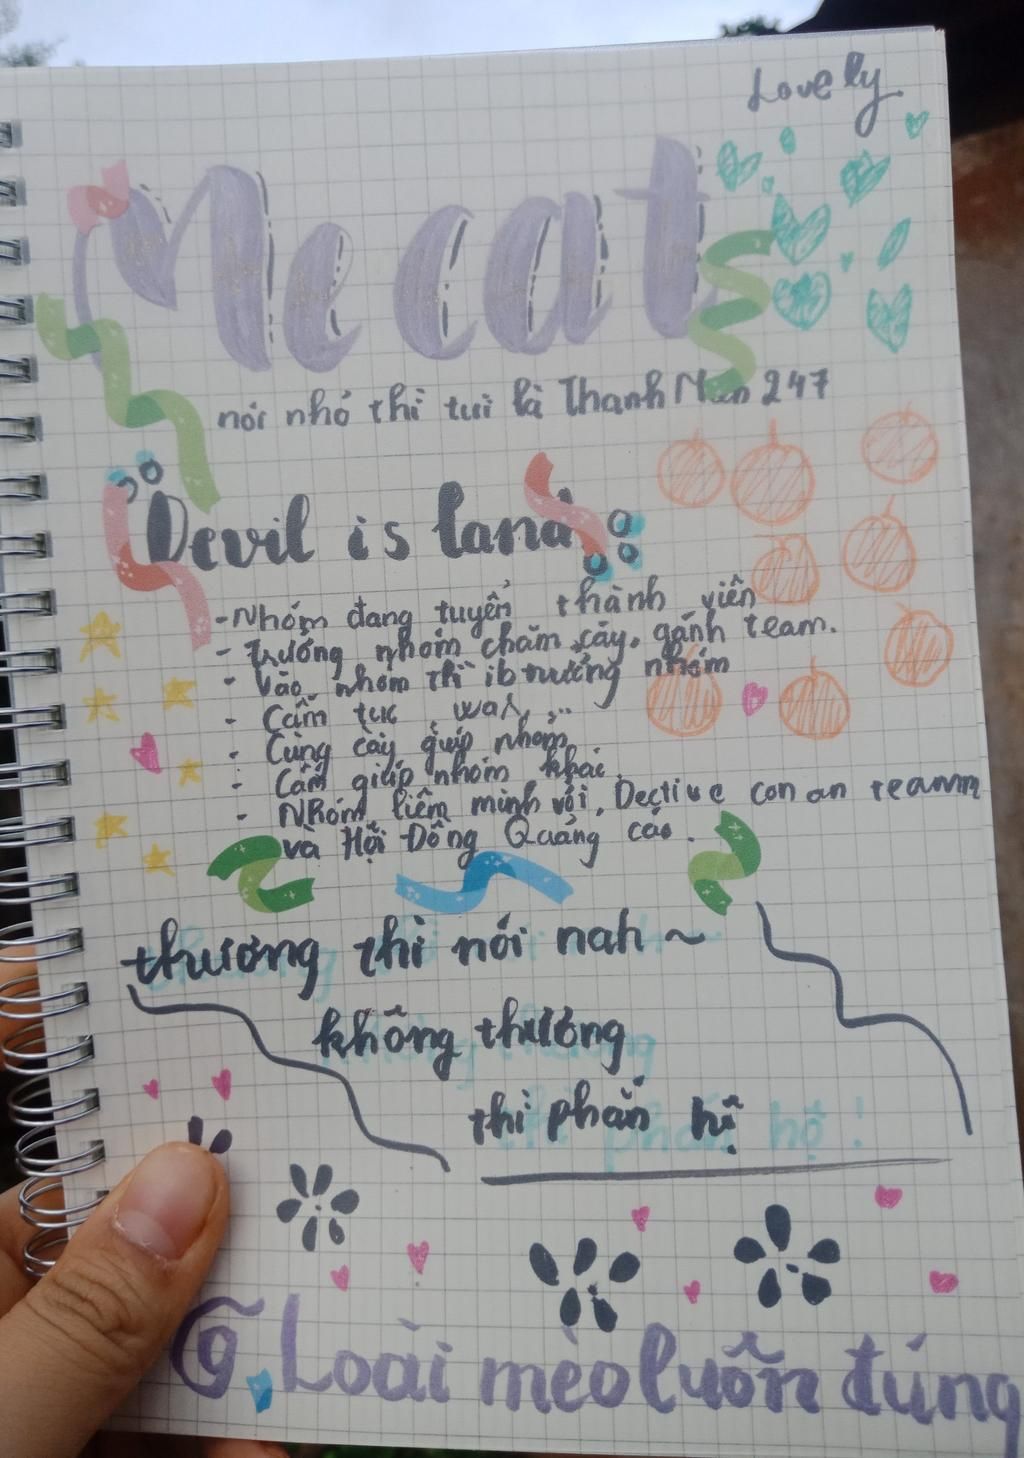 Lovely
Mecat
nói nhỏ thì tui là Thanh Mun 247
Devil is land
- Nhóm đang tuyển thành viên
- Trưởng nhóm chăm cày, gánh team.
- Vào nhóm thì ib trưởng nhóm
- Cấm tục, war, ...
- Cùng cày giúp nhóm
- Cấm giúp nhóm khác.
- Nhóm liêm minh với, Dective conan teamm
và Hội Đồng Quảng cáo.
thương thì nói nah ~
không thương
thì phắn hộ
Loài mèo luôn đúng